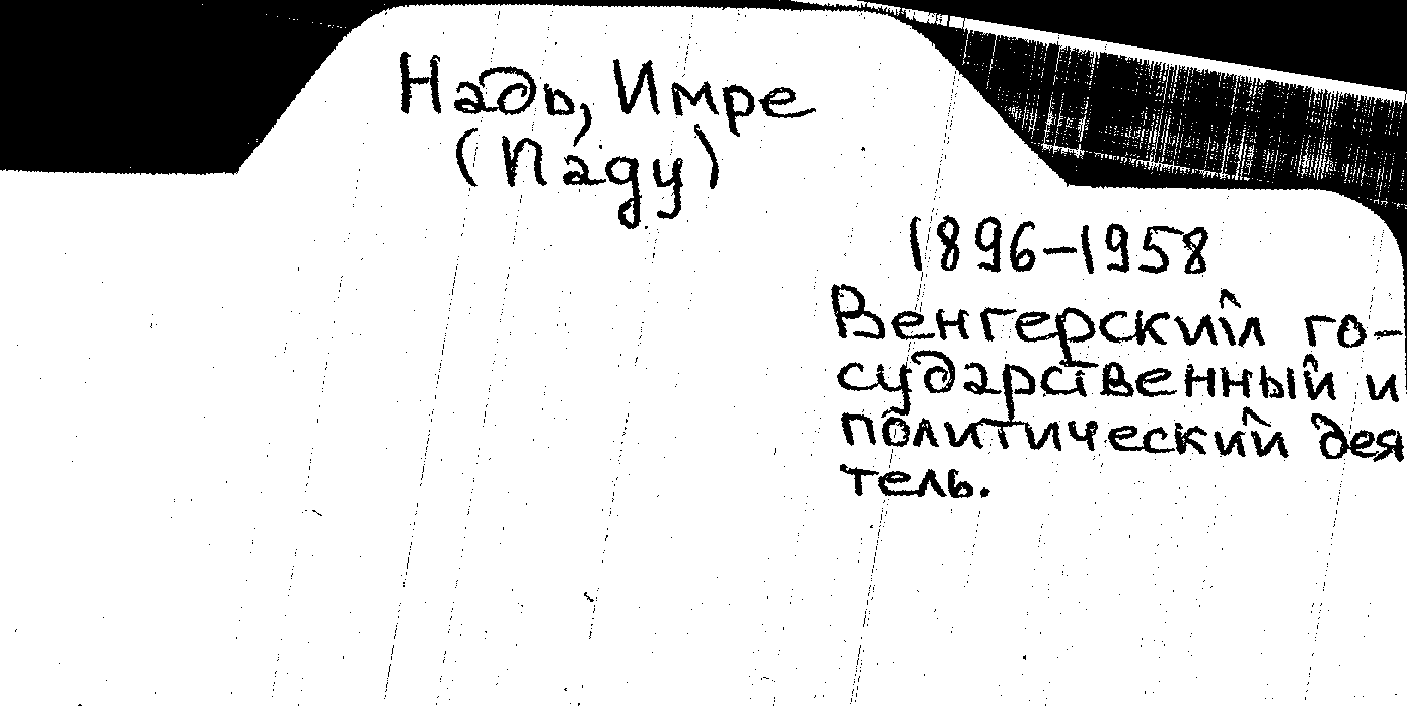 Надь, Имре
(Nagy)
1896-1958
Венгерский го-
сударственный и
политический дея
тель.